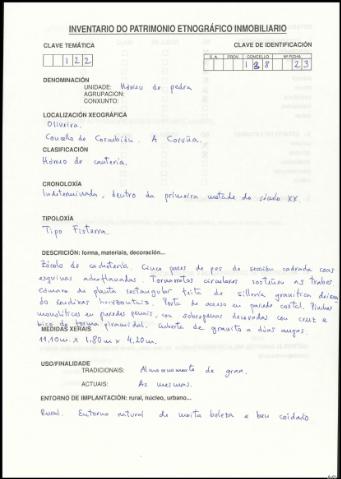 INVENTARIO DO PATRIMONIO ETNOGRÁFICO INMOBILIARIO
CLAVE TEMÁTICA
CLAVE DE IDENTIFICACIÓN
1 2 2
CONCELLO Nº FICHA
1 3 8 2 3
DENOMINACIÓN
UNIDADE: Hórreo de pedra
AGRUPACION:
CONXUNTO:
LOCALIZACIÓN XEOGRÁFICA
Oliveira.
Concello de Corcubión. A Coruña.
CLASIFICACIÓN
Hórreo de cantería.
CRONOLOXÍA
Indeterminada, dentro da primeira metade do século XX.
TIPOLOXÍA
Tipo Fisterra.
DESCRICIÓN: forma, materiais, decoración...
de cachotería. Cinco pares de pés de sección cadrada coas
esquinas achaflanadas. Tornarratos circulares sosteñen as trabes
Cámara de planta rectangular feita de sillería granítica
de rendixas horizontais. Porta de acceso en parede costal. Pinches
monolíticos en paredes penais, con sobrepenas decoradas con cruz e
bico de forma piramidal. Cuberta de granito a dúas augas.
MEDIDAS XERAIS
11.10m x 1.80m x 4.20m.
USO/FINALIDADE
TRADICIONAIS: Almacenamento de gran.
ACTUAIS: As mesmas.
ENTORNO DE IMPLANTACIÓN: rural, núcleo, urbano...
Rural. Entorno natural de moita beleza e ben coidado